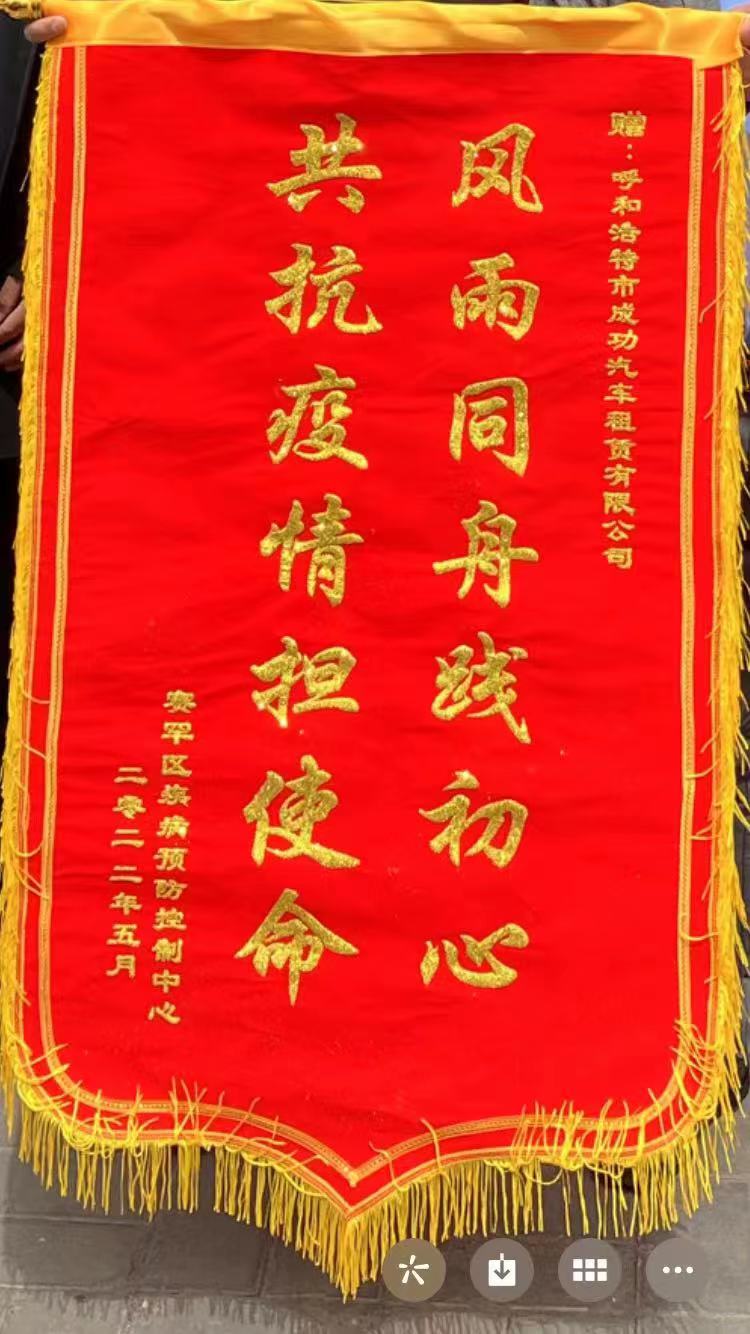 赠：呼和浩特市成功汽车租赁有限公司
风雨同舟践初心
共抗疫情担使命
赛罕区疾病预防控制中心
二零二二年五月